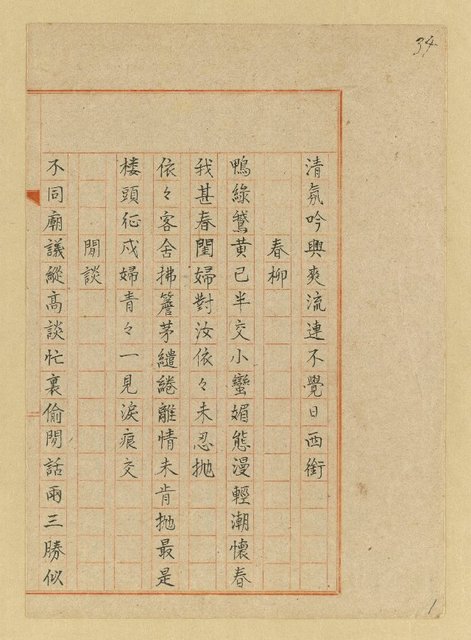 34
清氛吟興爽流連不覺日西銜
春柳
鴨綠鵞黃已半交小蠻媚態漫輕潮懷春
我甚春閨婦對汝依々未忍拋
依々客舍拂簷茅繾綣離情未肯拋最是
楼頭征戍婦青々一見淚痕交
閒談
不同廟議縱高談忙裏偷閒話兩三勝似
1